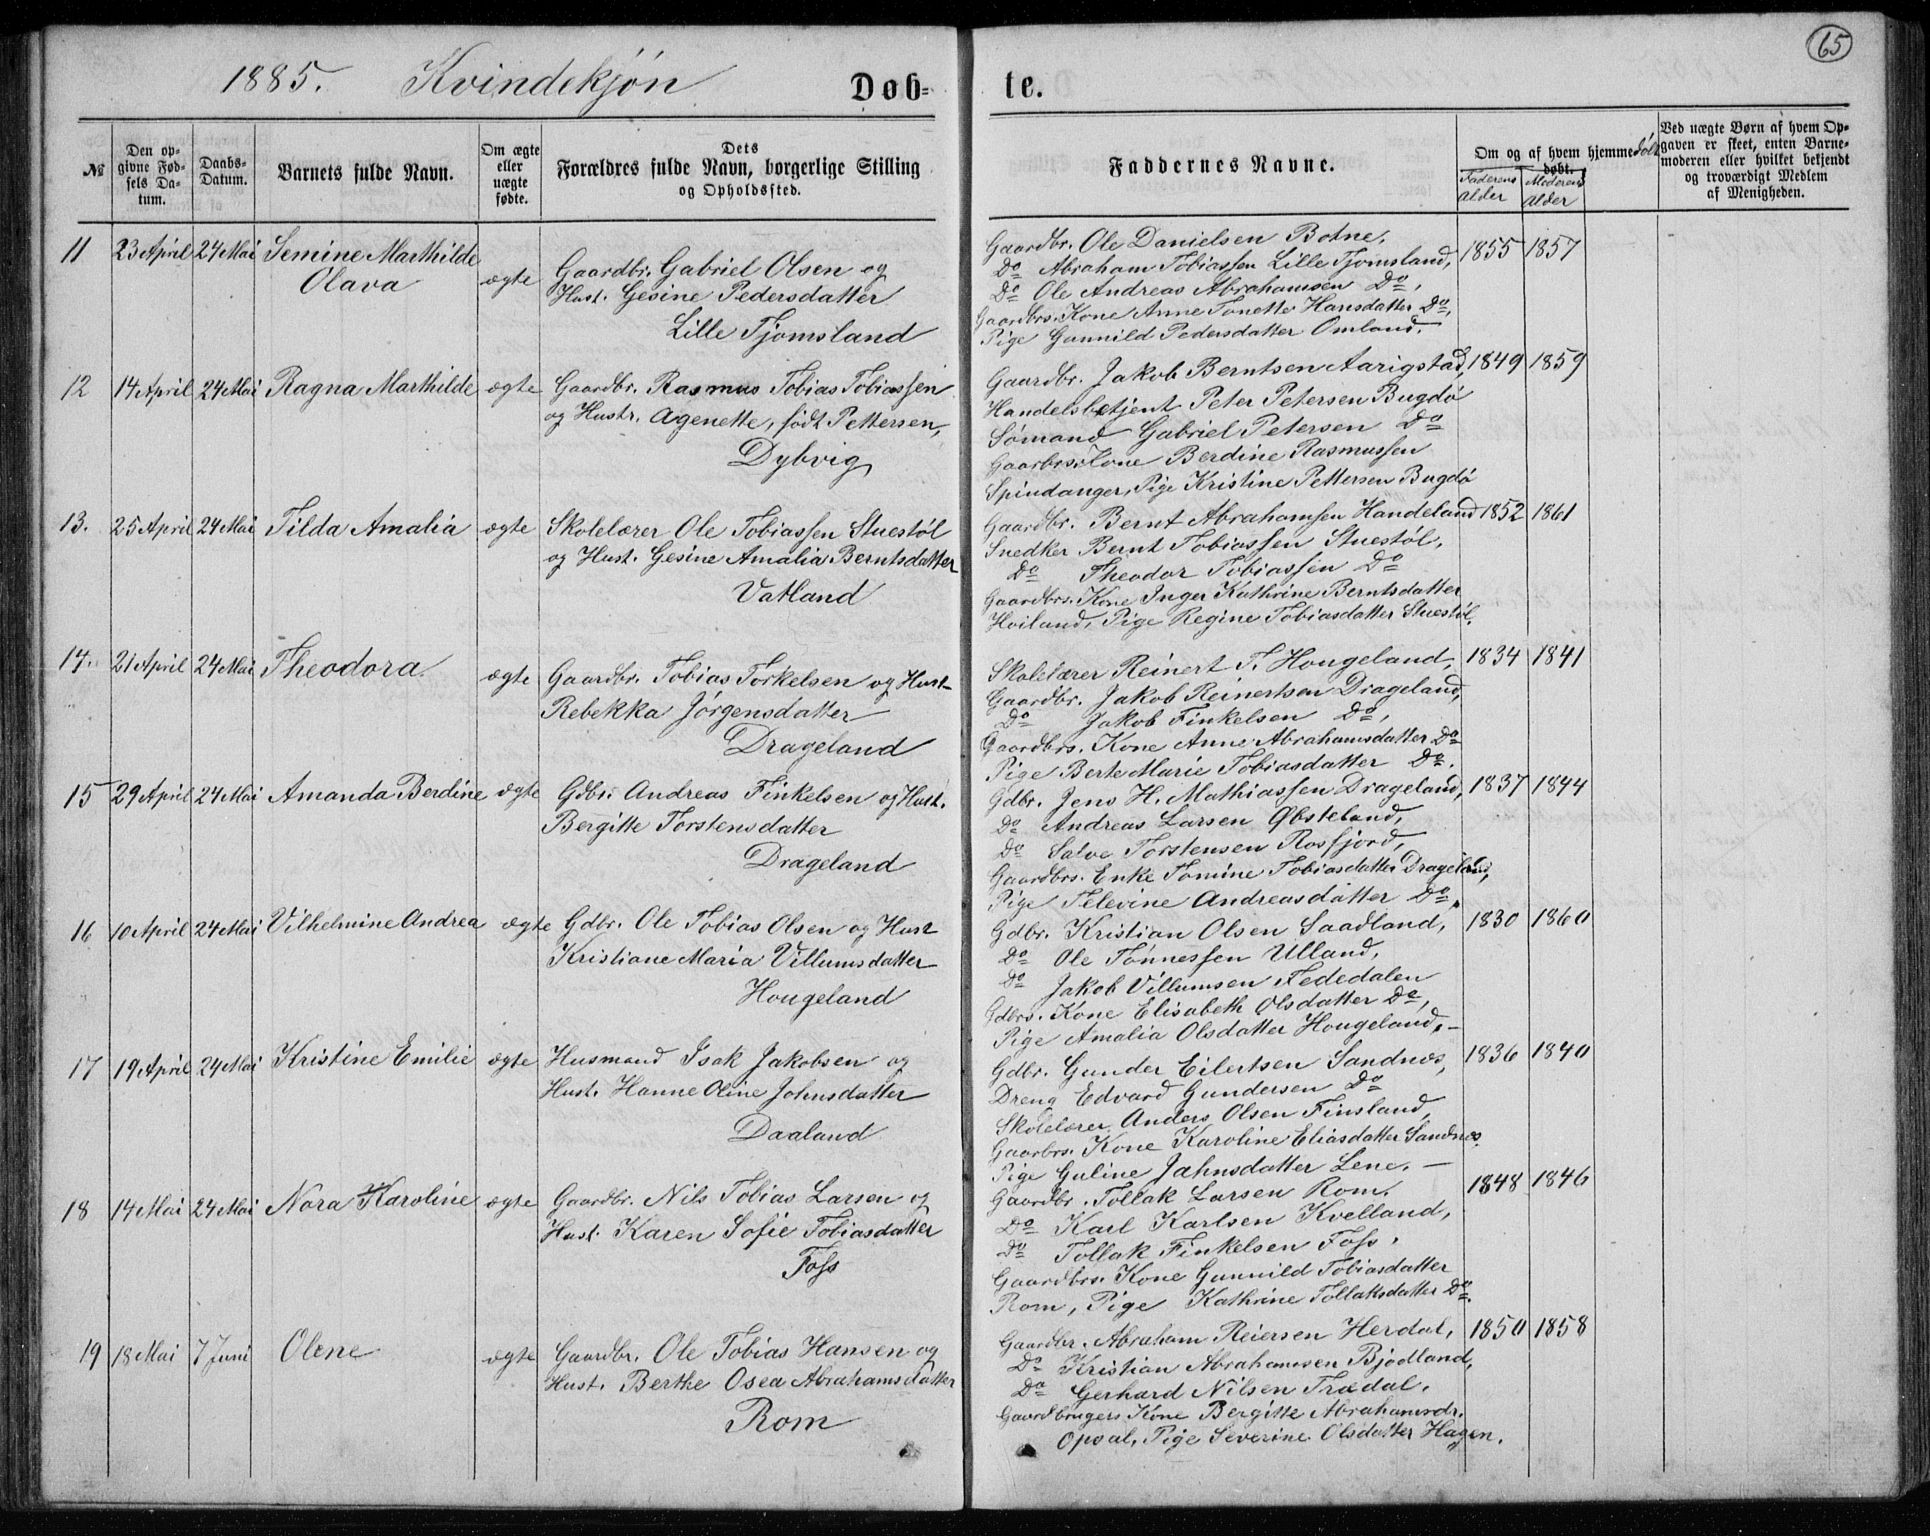 65
1885. Kvindekjøn Døb= te.
№
Den op-
givne Fød-
sels Da-
tum.
Daabs-
Datum.
Barnets fulde Navn.
Om ægte
eller
uægte
fødte.
Dets
Forældres fulde Navn, borgerlige Stilling
og Opholdssted.
Faddernes Navne.
Om og af hvem hjemme
døbt.
Faderens
Alder
Moderens
Alder
Ved uægte Børn af hvem Op-
gaven er skeet, enten Barne-
moderen eller hvilket bekjendt
og troværdigt Medlem
af Menigheden.
11 23 April 24 Mai Semine Marthilde
Olava
ægte
Gaardbr. Gabriel Olsen og
Hust. Gesine Pedersdatter
Lille Tjomsland
Gaardbr. Ole Danielsen Botne,
Do Abraham Tobiassen Lille Tjomsland,
Do Ole Andreas Abrahamsen Do,
Gaardbrs. Kone Anne Tonette Hansdatter Do,
Pige Gunnild Pedersdatter Omland.
1855 1857
12 14 April 24 Mai Ragna Marthilde ægte Gaardbr. Rasmus Tobias Tobiassen
og Hustr. Agenette, født Pettersen,
Dybvig
Gaardbr. Jakob Berntsen Aarigstad,
Handelsbetjent Peter Petersen Bugdø
Sømand Gabriel Petersen Do
Gaarbrs. Kone Berdine Rasmussen
Spindanger, Pige Kristine Pettersen Bugdø
1849 1859
13. 25 April 24 Mai Tilda Amalia ægte Skolelærer Ole Tobiassen Stuestøl
og Hust. Gesine Amalia Berntsdatter
Vatland
Gaardbr. Bernt Abrahamsen Handeland
Snedker Bernt Tobiassen Stuestøl,
Do Theodor Tobiassen Do
Gaardbrs. Kone Inger Kathrine Berntsdatter
Hoiland, Pige Regine Tobiasdatter Stuestøl.
1852 1861
14. 21 April 24 Mai Theodora ægte Gaardbr. Tobias Torkelsen og Hust
Rebekka Jørgensdatter
Drageland
Skolelærer Reinert T. Hougeland,
Gaardbr. Jakob Reinertsen Drageland,
Do Jakob Finkelsen Do,
Gaardbrs. Kone Anne Abrahamsdatter Do
Pige Berte Marie Tobiasdatter Do.
1834 1841
15 29 April 24 Mai Amanda Berdine ægte Gdbr. Andreas Finkelsen og Hust.
Bergitte Torstensdatter
Drageland
Gdbr. Jens H. Mathiassen Drageland,
Do Andreas Larsen Øbsteland,
Do Salve Torstensen Rosfjord,
Gaardbrs. Enke Tomine Tobiasdatter Drageland,
Pige Televine Andreasdatter Do.
1837 1844
16 10 April 24 Mai Vilhelmine Andrea ægte Gdbr. Ole Tobias Olsen og Hust
Kristiane Maria Villumsdatter
Hougeland
Gdbr. Kristian Olsen Saadland,
Do Ole Tønnessen Ulland,
Do Jakob Villumsen Fededalen
Gdbrs. Kone Elisabeth Olsdatter Do,
Pige Amalia Olsdatter Hougeland.
1830 1860
17 19 April 24 Mai Kristine Emilie ægte Husmand Isak Jakobsen og
Hust. Hanne Oline Johnsdatter
Daaland
Gdbr. Gunder Eilertsen Sandnes,
Dreng Edvard Gundersen Do
Skolelærer Anders Olsen Finsland,
Gaarbrs. Kone Karoline Eliasdatter Sandnes.
Pige Guline Jahnsdatter Lene.
1836 1840
18 14 Mai 24 Mai Nora Karoline ægte Gaardbr. Nils Tobias Larsen og
Hust. Karen Sofie Tobiasdatter
Foss
Gaardbr. Tollak Larsen Rom.
Do Karl Karlsen Kvelland,
Do Tollak Finkelsen Foss.
Gaardbrs. Kone Gunnild Tobiasdatter
Rom, Pige Kathrine Tollaksdatter Do.
1848 1846
19 18 Mai 7 Juni Olene ægte Gaardbr. Ole Tobias Hansen og
Hust. Berthe Osea Abrahamsdatter
Rom
Gaardbr. Abraham Reiersen Herdal,
Do Kristian Abrahamsen Bjodland,
Do Gerhard Nilsen Trædal.
Gaardbrugers Kone Bergitte Abrahamsdr.
Opsal, Pige Severine Olsdatter Hagen.
1850 1858